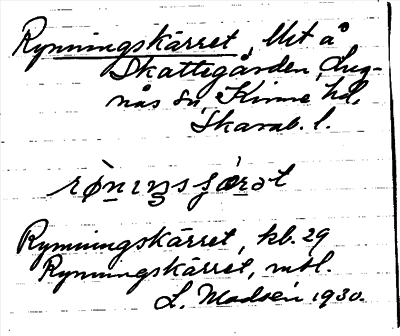 Rynningskärret, Mst å
Skattegården, Lug-
nås sn, Kinne hd,
Skarab. l.
rønɪŋsɕærət
Rynningskärret, kb. 29
Rynningskärret, mtl.
L. Madsén 1930.